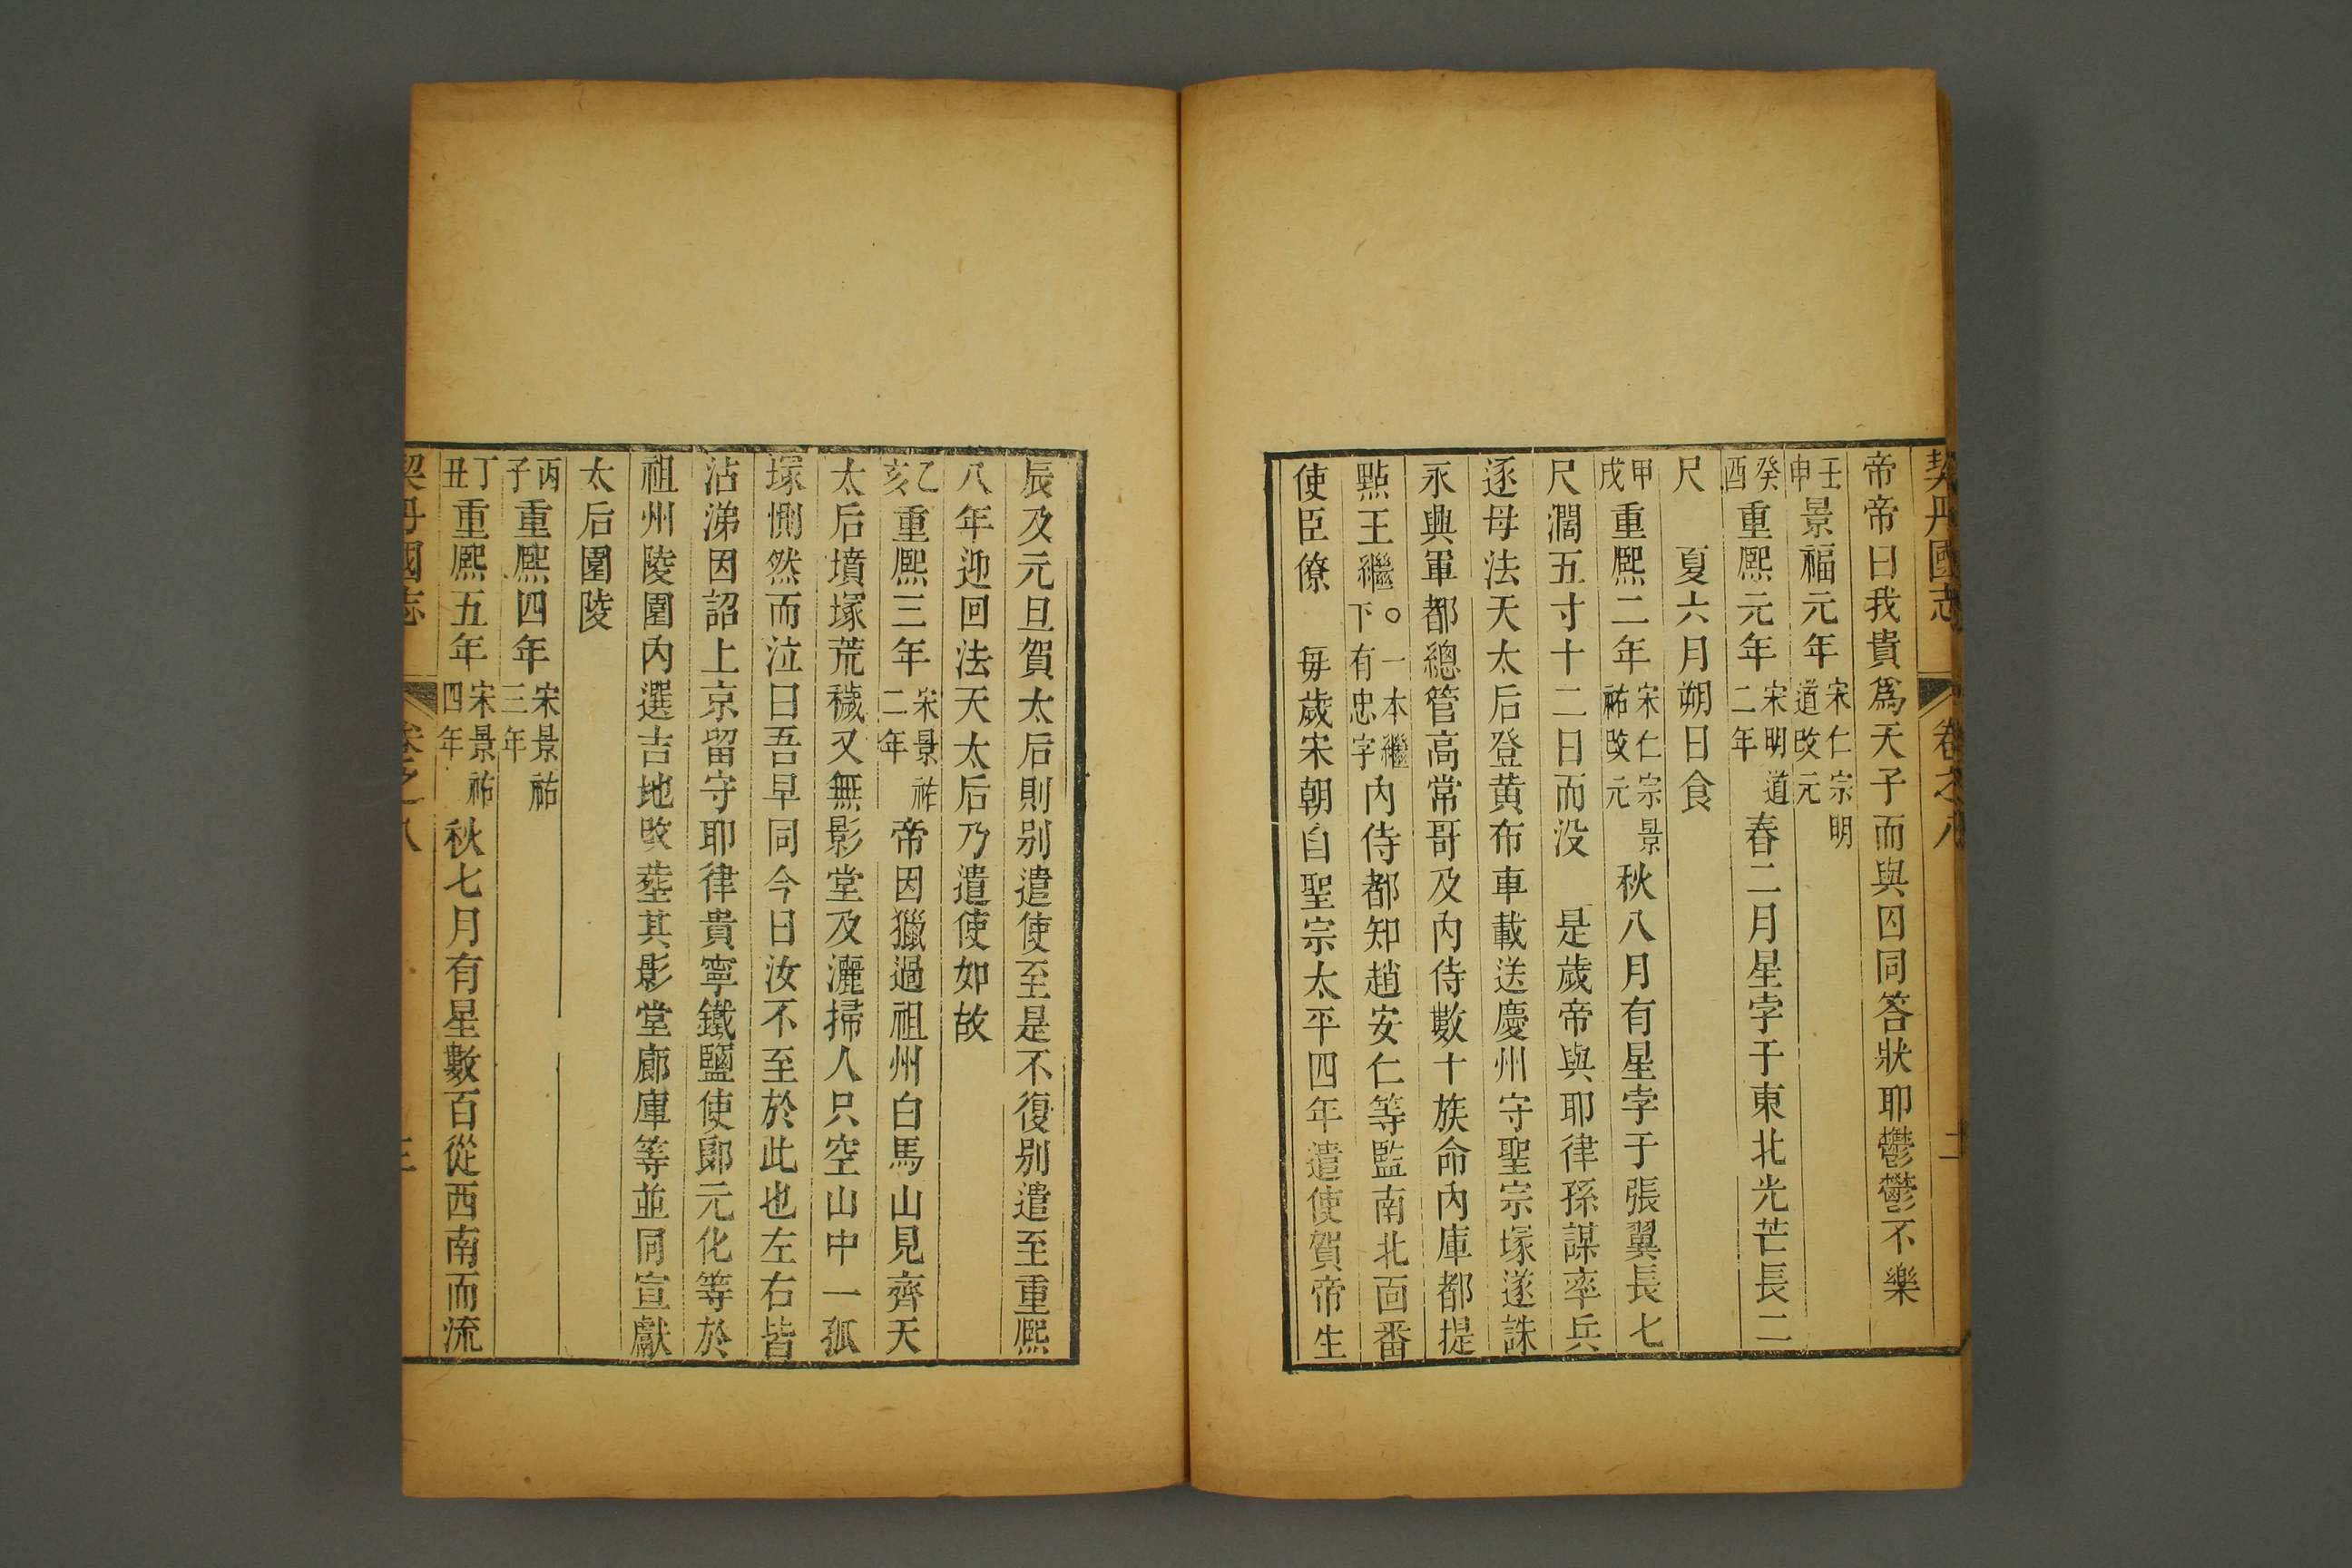 契丹國志 卷之八 二
帝帝曰我貴爲天子而與囚同答狀耶鬱鬱不樂
壬申景福元年宋仁宗明道改元
癸酉重熙元年宋明道二年春二月星孛于東北光芒長二
尺 夏六月朔日食
甲戌重熙二年宋仁宗景祐改元秋八月有星孛于張翼長七
尺濶五寸十二日而没 是歲帝與耶律孫謀率兵
逐母法天太后登黄布車載送慶州守聖宗塚遂誅
永興軍都總管高常哥及内侍數十族命内庫都提
點王繼。一本繼下有忠字内侍都知趙安仁等監南北面番
使臣僚 毎歲宋朝自聖宗太平四年遣使賀帝生
辰及元旦賀太后則别遣使至是不復别遣至重熙
八年迎回法天太后乃遣使如故
乙亥重熙三年宋景祐二年帝因獵過祖州白馬山見齊天
太后墳塚荒穢又無影堂及灑掃人只空山中一孤
塚惻然而泣曰吾早同今日汝不至於此也左右皆
沾涕因詔上京留守耶律貴寧鐵鹽使郎元化等於
祖州陵園内選吉地改塟其影堂廊庫等並同宣獻
太后園陵
丙子重熙四年宋景祐三年
丁丑重熙五年宋景祐四年秋七月有星數百從西南而流
契丹國志 卷之八 三